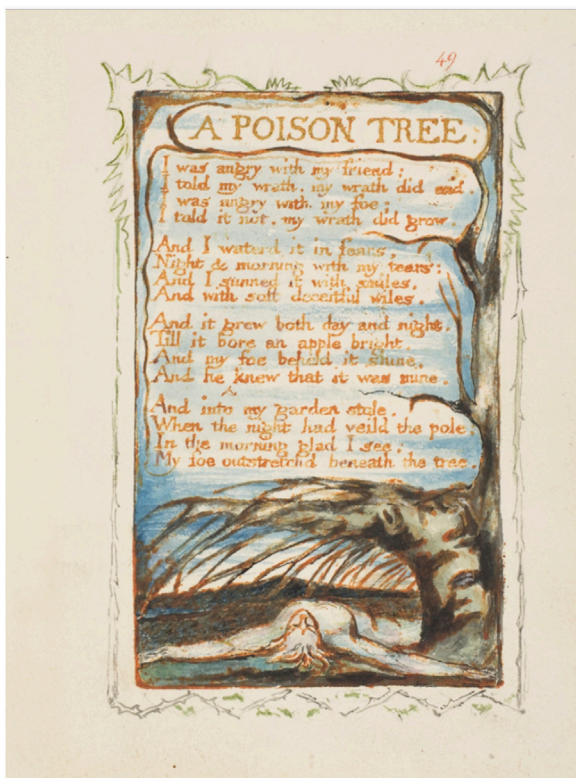 49
A POISON TREE.
I was angry with my friend;
I told my wrath, my wrath did end.
I was angry with my foe:
I told it not, my wrath did grow.
And I waterd it in fears,
Night & morning with my tears:
And I sunned it with smiles,
And with soft deceitful wiles.
And it grew both day and night,
Till it bore an apple bright.
And my foe beheld it shine,
And he knew that it was mine.
And into my garden stole,
When the night had veild the pole
In the morning glad I see,
My foe outstretchd beneath the tree.